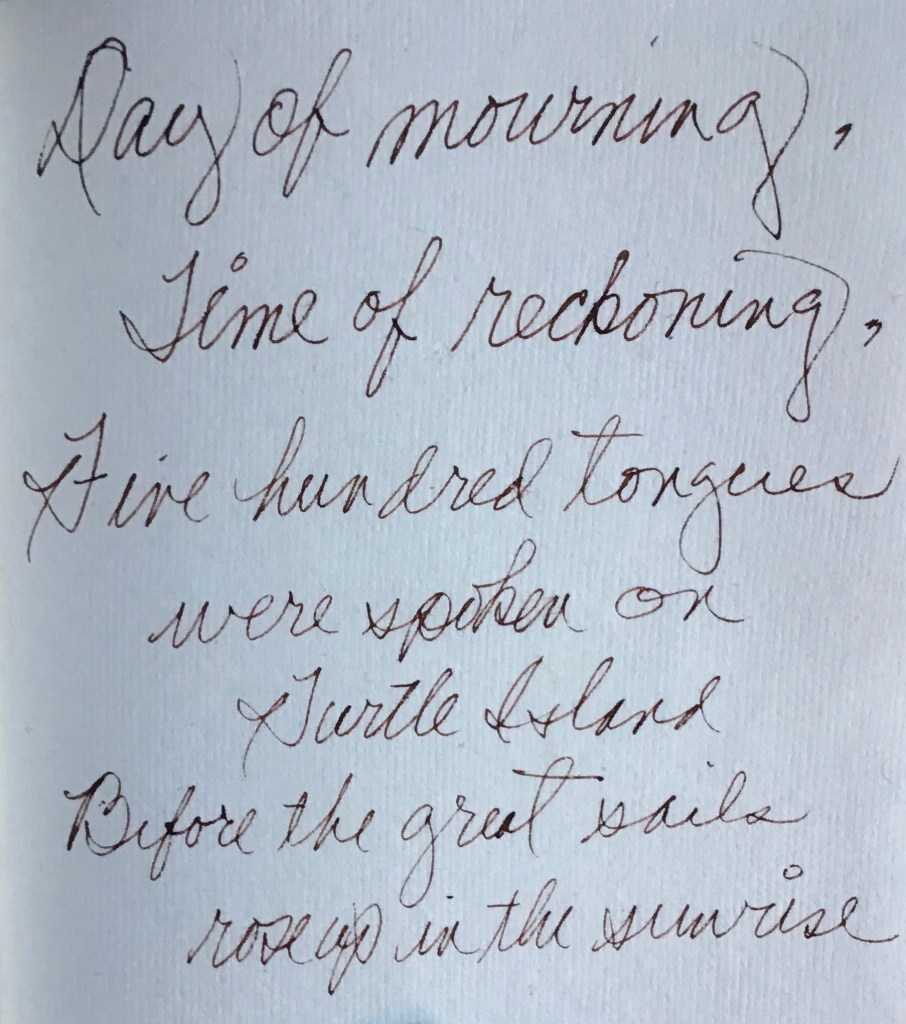 Day of mourning,
Time of reckoning,
Five hundred tongues
were spoken on
Turtle Island
Before the great sails
rose up in the sunrise